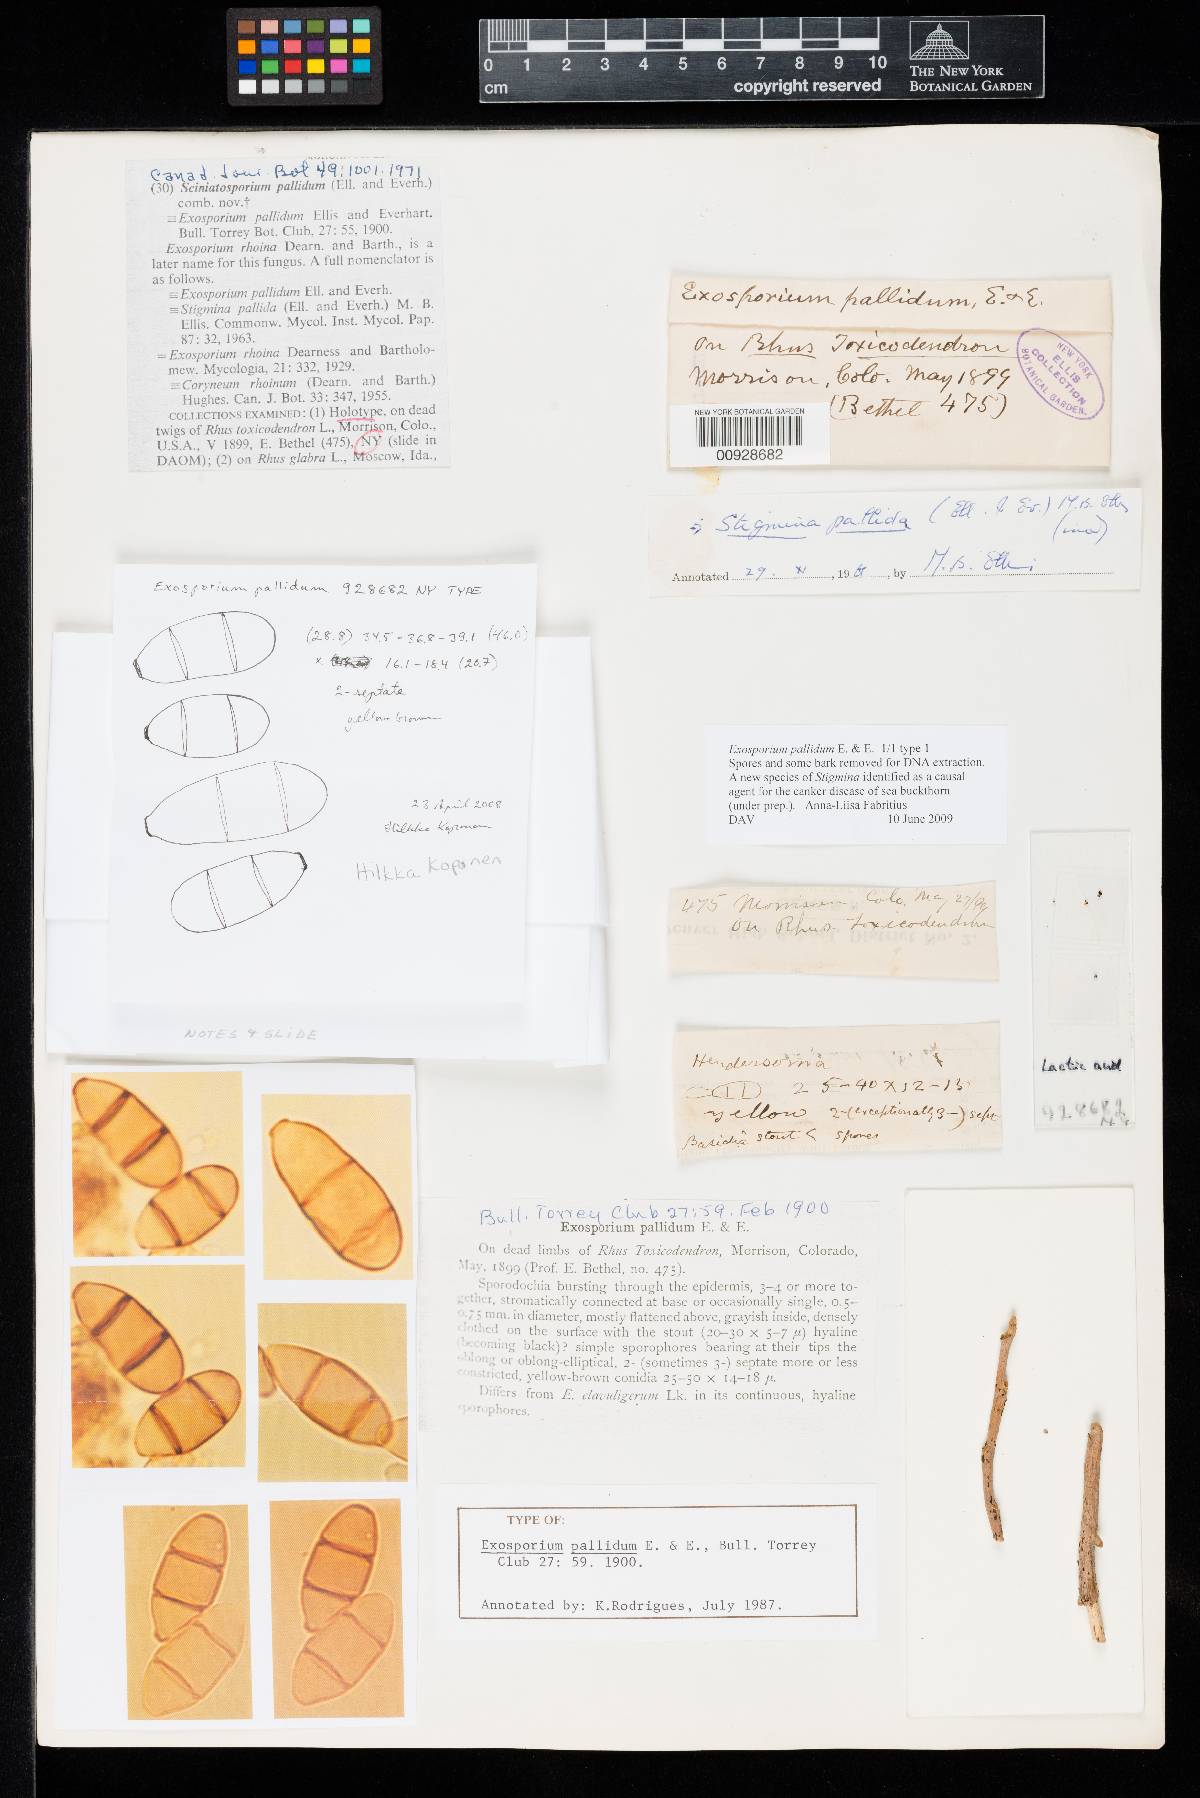 0 1 2 3 4 5 6 7 8 9 10
cm
copyright reserved
THE NEW YORK
BOTANICAL GARDEN
Canad. Jour. Bot 49:1001. 1971
(30) Sciniatosporium pallidum (Ell. and Everh.)
comb. nov.†
≡Exosporium pallidum Ellis and Everhart.
Bull. Torrey Bot. Club, 27: 55, 1900.
Exosporium rhoina Dearn. and Barth., is a
later name for this fungus. A full nomenclator is
as follows.
≡Exosporium pallidum Ell. and Everh.
≡Stigmina pallida (Ell. and Everh.) M. B.
Ellis. Commonw. Mycol. Inst. Mycol. Pap.
87: 32, 1963.
=Exosporium rhoina Dearness and Bartholo-
mew. Mycologia, 21: 332, 1929.
≡Coryneum rhoinum (Dearn. and Barth.)
Hughes. Can. J. Bot. 33: 347, 1955.
COLLECTIONS EXAMINED: (1) Holotype, on dead
twigs of Rhus toxicodendron L., Morrison, Colo.,
U.S.A., V 1899, E. Bethel (475), NY (slide in
DAOM); (2) on Rhus glabra L., Moscow, Ida.,
Exosporium pallidum, E. & E.
on Rhus Toxicodendron
Morrison, Colo. May 1899
(Bethel 475)
NEW YORK
ELLIS
COLLECTION
BOTANICAL GARDEN.
NEW YORK BOTANICAL GARDEN
00928682
Stigmina pallida (Ell. & Ev.) M.B. Ellis
Annotated 29. , 19 , by M. B. Ellis
Exosporium pallidum 928682 NY TYPE
(28.8) 34.5-36.8-39.1 (46.0)
x 16.1-18.4 (20.7)
2-septate
yellow brown
23 April 2008
Hilkka Koponen
Hilkka Koponen
NOTES & SLIDE
Exosporium pallidum E. & E. 1/1 type 1
Spores and some bark removed for DNA extraction.
A new species of Stigmina identified as a causal
agent for the canker disease of sea buckthorn
(under prep.). Anna-Liisa Fabritius
DAV 10 June 2009
475 Morrison Colo. May 27/99
on Rhus toxicodendron
Hendersonia
25-40 x 12-15
yellow 2-(exceptionally 3-) sept
Basidia stout & spores
Lactic acid
928682
NY
Bull. Torrey Club 27:59. Feb 1900
Exosporium pallidum E. & E.
On dead limbs of Rhus Toxicodendron, Morrison, Colorado,
May, 1899 (Prof. E. Bethel, no. 475).
Sporodochia bursting through the epidermis, 3-4 or more to-
gether, stromatically connected at base or occasionally single, 0.5-
0.75 mm. in diameter, mostly flattened above, grayish inside, densely
clothed on the surface with the stout (20-30 × 5-7 μ) hyaline
(becoming black)? simple sporophores bearing at their tips the
oblong or oblong-elliptical, 2- (sometimes 3-) septate more or less
constricted, yellow-brown conidia 25-50 × 14-18 μ.
Differs from E. clavuligerum Lk. in its continuous, hyaline
sporophores.
TYPE OF:
Exosporium pallidum E. & E., Bull. Torrey
Club 27: 59. 1900.
Annotated by: K.Rodrigues, July 1987.